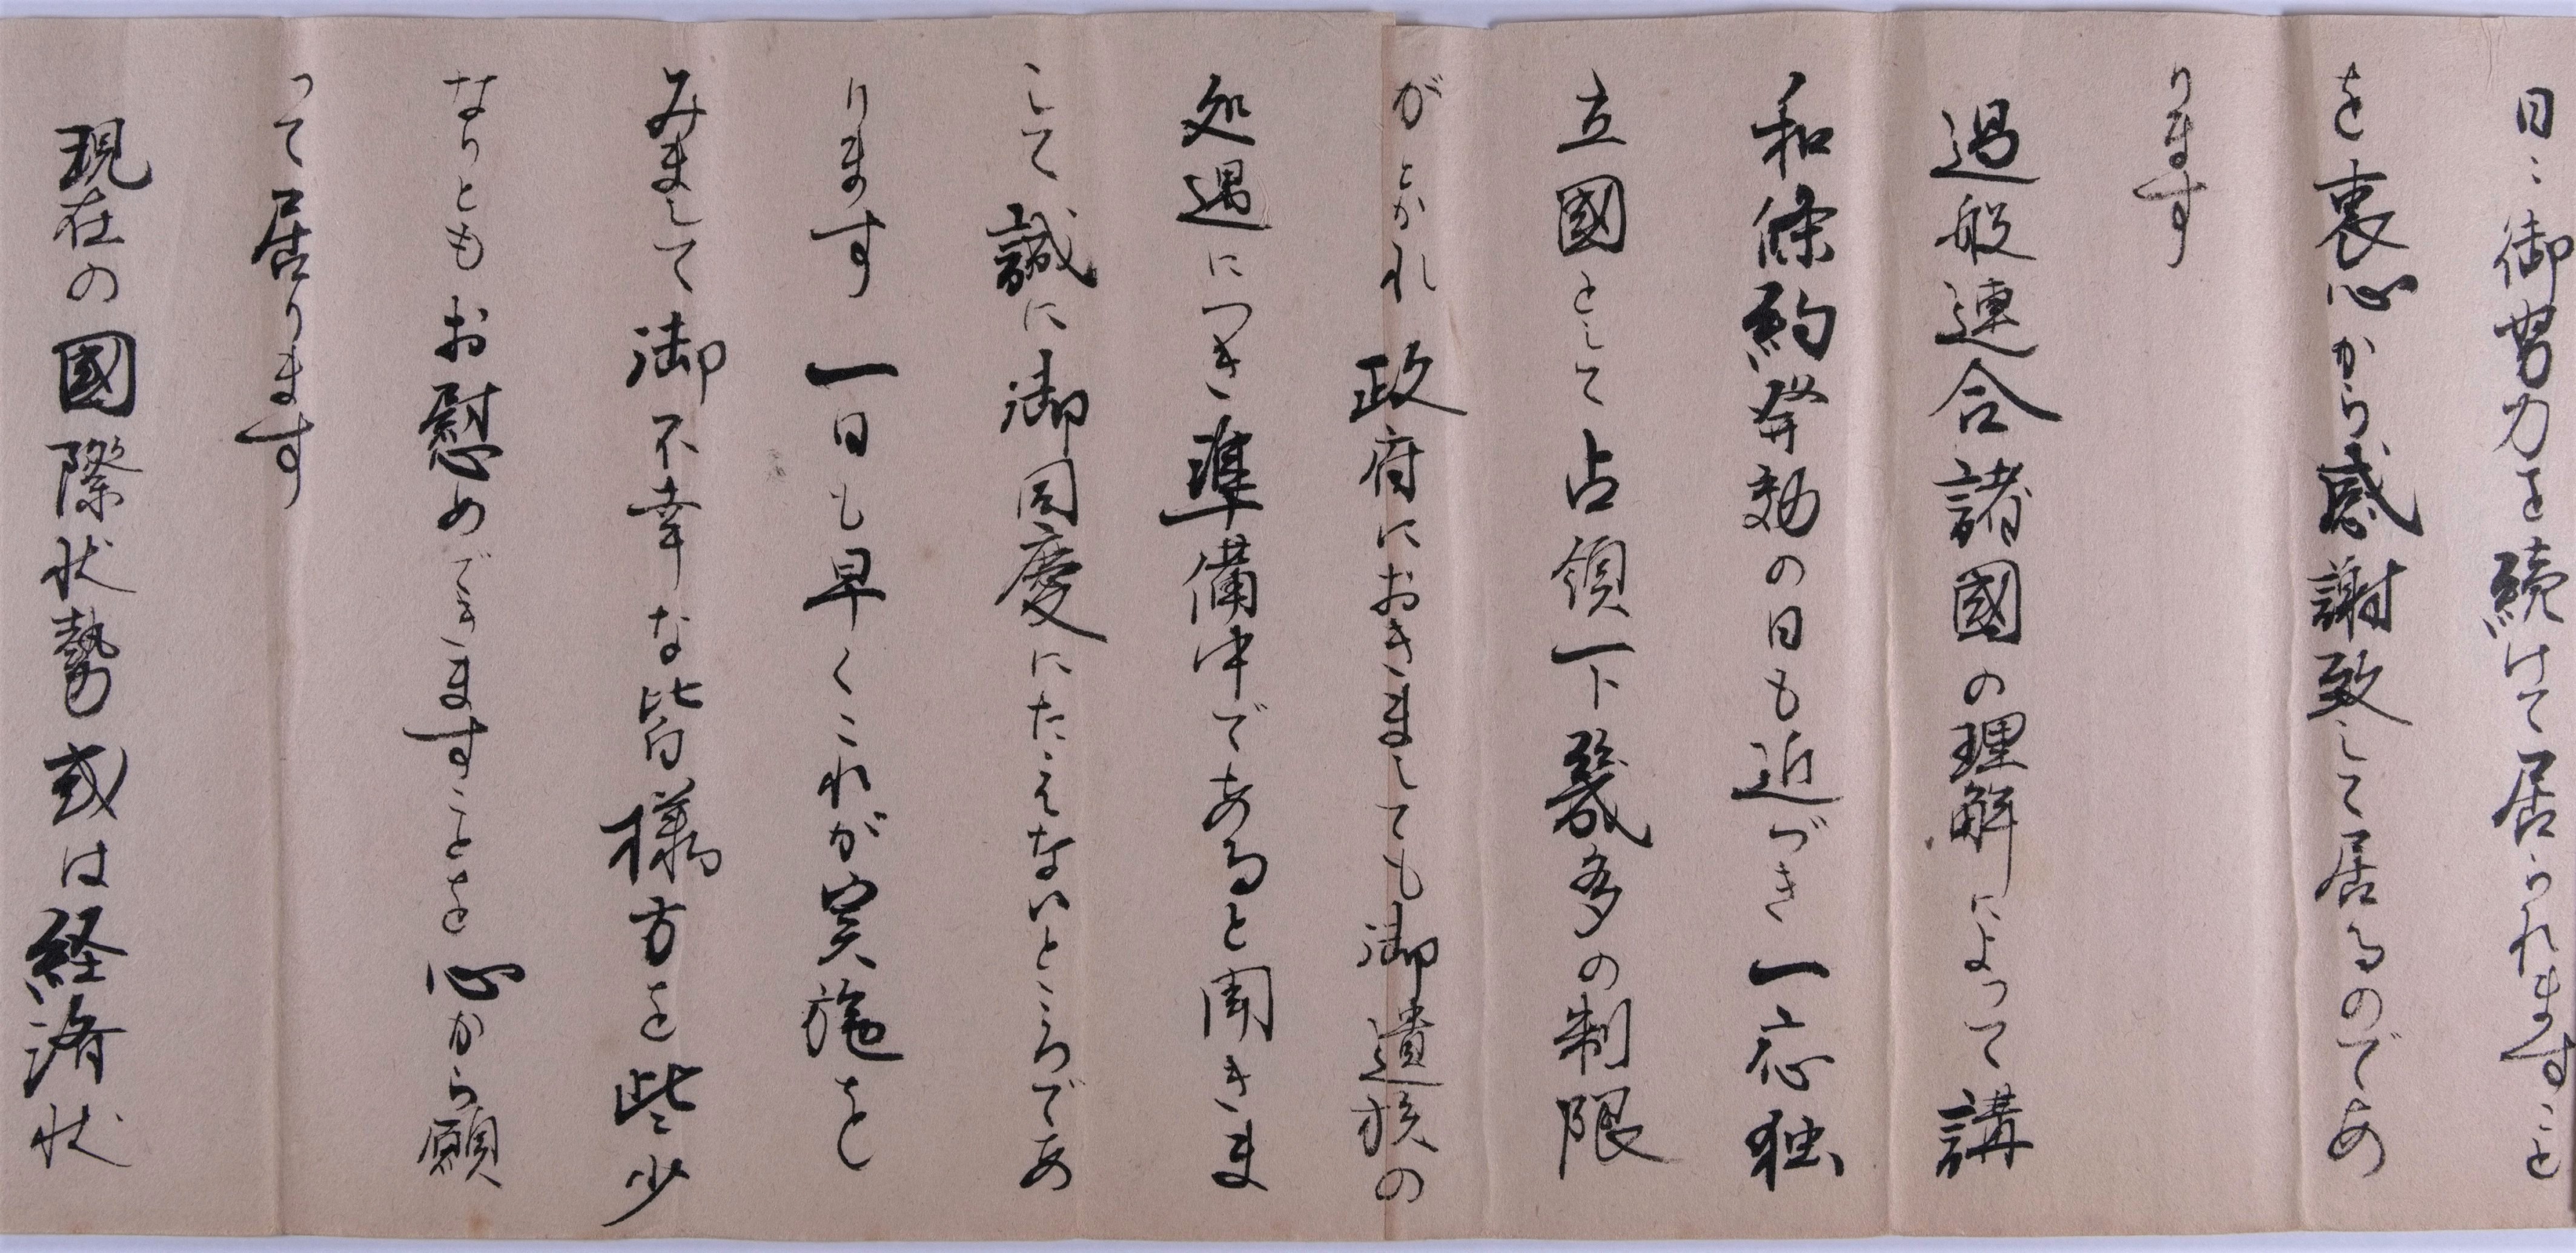 日々御努力を続けて居られますこと
を衷心から感謝致して居るのであ
ります
過般連合諸國の理解によって講
和條約発効の日も近づき一応独
立國として占領下幾多の制限
がとかれ政府におきましても御遺族の
処遇につき準備中であると聞きま
して誠に御同慶にたえないところであ
ります一日も早くこれが実施を
みまして御不幸な皆様方を些少
なりともお慰めできますことを心から願
って居ります
現在の國際状勢或は経済状